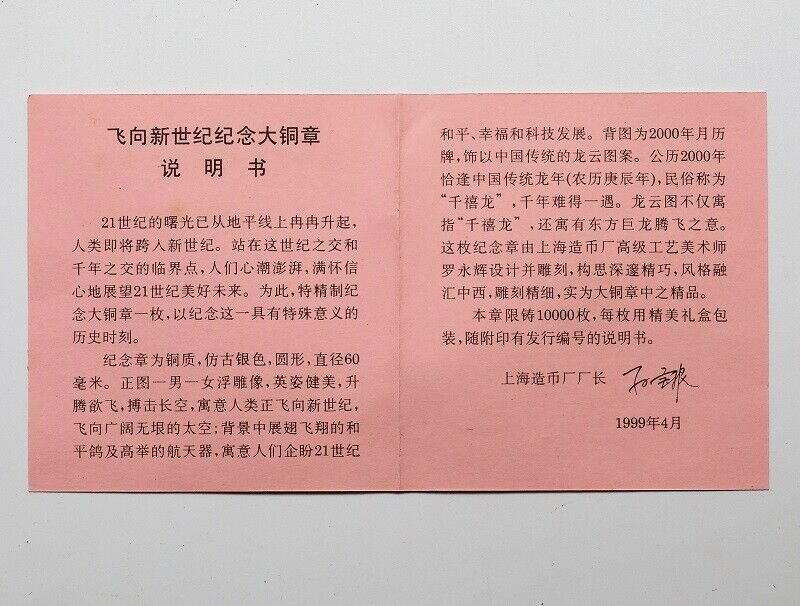 飞向新世纪纪念大铜章
说明书
21世纪的曙光已从地平线上冉冉升起，
人类即将跨入新世纪。站在这世纪之交和
千年之交的临界点，人们心潮澎湃，满怀信
心地展望21世纪美好未来。为此，特精制纪
念大铜章一枚，以纪念这一具有特殊意义的
历史时刻。
纪念章为铜质，仿古银色，圆形，直径60
毫米。正图一男一女浮雕像，英姿健美，升
腾欲飞，搏击长空，寓意人类正飞向新世纪，
飞向广阔无垠的太空；背景中展翅飞翔的和
平鸽及高举的航天器，寓意人们企盼21世纪
和平、幸福和科技发展。背图为2000年月历
牌，饰以中国传统的龙云图案。公历2000年
恰逢中国传统龙年(农历庚辰年)，民俗称为
“千禧龙”，千年难得一遇。龙云图不仅寓
指“千禧龙”，还寓有东方巨龙腾飞之意。
这枚纪念章由上海造币厂高级工艺美术师
罗永辉设计并雕刻，构思深邃精巧，风格融
汇中西，雕刻精细，实为大铜章中之精品。
本章限铸10000枚，每枚用精美礼盒包
装，随附印有发行编号的说明书。
上海造币厂厂长
1999年4月